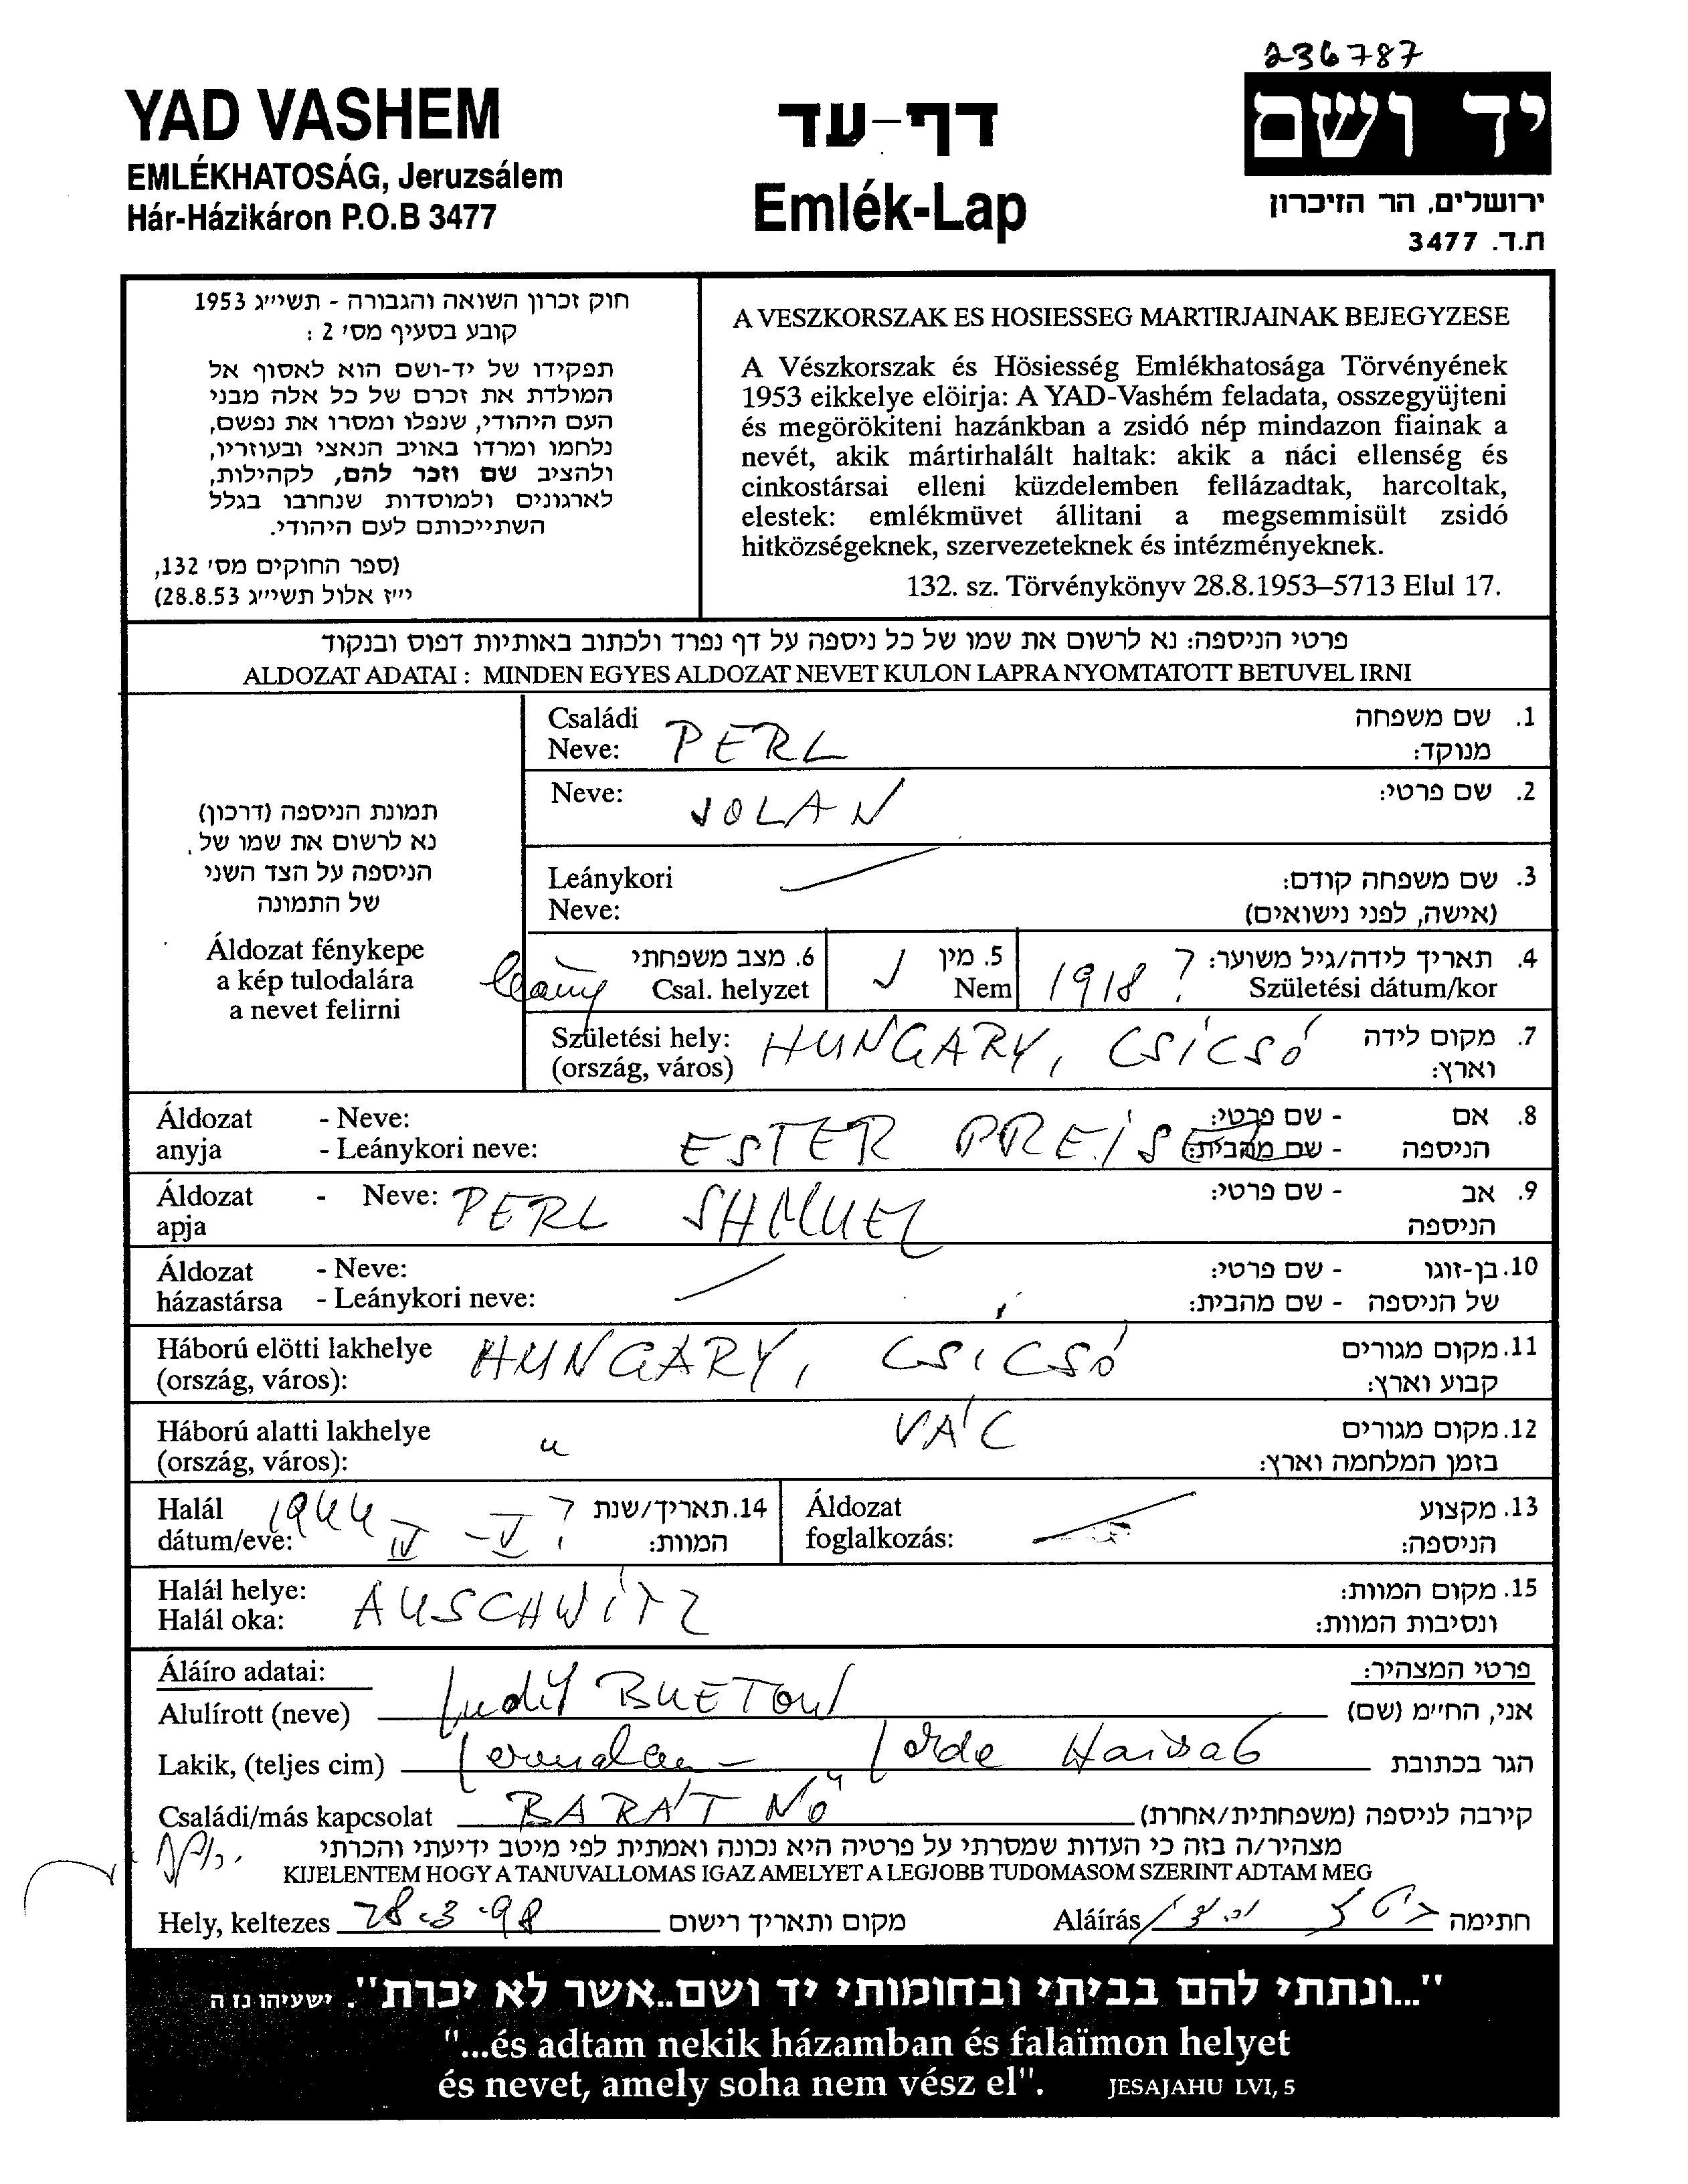 236787
YAD VASHEM
EMLÉKHATOSÁG, Jeruzsálem
Hár-Házikáron P.O.B 3477
דף-עד
Emlék-Lap
יד ושם
ירושלים, הר הזיכרון
ת.ד. 3477
חוק זכרון השואה והגבורה - תשי״ג 1953
קובע בסעיף מס׳ 2 :
תפקידו של יד-ושם הוא לאסוף אל
המולדת את זכרם של כל אלה מבני
העם היהודי, שנפלו ומסרו את נפשם,
נלחמו ומרדו באויב הנאצי ובעוזריו,
ולהציב שם וזכר להם, לקהילות,
לארגונים ולמוסדות שנחרבו בגלל
השתייכותם לעם היהודי.
(ספר החוקים מס׳ 132,
י״ז אלול תשי״ג 28.8.53)
A VESZKORSZAK ES HOSIESSEG MARTIRJAINAK BEJEGYZESE
A Vészkorszak és Hösiesség Emlékhatosága Törvényének
1953 eikkelye elöirja: A YAD-Vashém feladata, osszegyüjteni
és megörökiteni hazánkban a zsidó nép mindazon fiainak a
nevét, akik mártirhalált haltak: akik a náci ellenség és
cinkostársai elleni küzdelemben fellázadtak, harcoltak,
elestek: emlékmüvet állitani a megsemmisült zsidó
hitközségeknek, szervezeteknek és intézményeknek.
132. sz. Törvénykönyv 28.8.1953–5713 Elul 17.
פרטי הניספה: נא לרשום את שמו של כל ניספה על דף נפרד ולכתוב באותיות דפוס ובנקוד
ALDOZAT ADATAI : MINDEN EGYES ALDOZAT NEVET KULON LAPRA NYOMTATOTT BETUVEL IRNI
תמונת הניספה (דרכון)
נא לרשום את שמו של
הניספה על הצד השני
של התמונה
Áldozat fénykepe
a kép tulodalára
a nevet felirni
Családi
Neve: PERL
1. שם משפחה
מנוקד:
Neve: JOLAN
2. שם פרטי:
Leánykori
Neve:
3. שם משפחה קודם:
(אישה, לפני נישואים)
leány
6. מצב משפחתי
Csal. helyzet
5. מין
Nem
1918 ?
4. תאריך לידה/גיל משוער:
Születési dátum/kor
Születési hely:
(ország, város) HUNGARY, CSÍCSÓ
7. מקום לידה
וארץ:
Áldozat - Neve:
anyja - Leánykori neve: ESTER PREISER
8. אם - שם פרטי:
הניספה - שם מהבית:
Áldozat - Neve: PERL SHMUEL
apja
9. אב - שם פרטי:
הניספה
Áldozat - Neve:
házastársa - Leánykori neve:
10. בן-זוגו - שם פרטי:
של הניספה - שם מהבית:
Háború elötti lakhelye
(ország, város): HUNGARY, CSÍCSÓ
11. מקום מגורים
קבוע וארץ:
Háború alatti lakhelye
(ország, város): " VÁC
12. מקום מגורים
בזמן המלחמה וארץ:
Halál
dátum/eve: 1944 IV - V ?
14. תאריך/שנת
המוות:
Áldozat
foglalkozás:
13. מקצוע
הניספה:
Halál helye:
Halál oka: AUSCHWITZ
15. מקום המוות:
ונסיבות המוות:
Áláíro adatai:
פרטי המצהיר:
Alulírott (neve) Judit BUETOW
אני, הח״מ (שם)
Lakik, (teljes cim)
הגר בכתובת
Családi/más kapcsolat BARÁTNŐ
קירבה לניספה (משפחתית/אחרת)
מצהיר/ה בזה כי העדות שמסרתי על פרטיה היא נכונה ואמתית לפי מיטב ידיעתי והכרתי
KIJELENTEM HOGY A TANUVALLOMAS IGAZ AMELYET A LEGJOBB TUDOMASOM SZERINT ADTAM MEG
Hely, keltezes 28.3.98
מקום ותאריך רישום
Aláírás
חתימה
"...ונתתי להם בביתי ובחומותי יד ושם..אשר לא יכרת". ישעיהו נז ה
"...és adtam nekik házamban és falaïmon helyet
és nevet, amely soha nem vész el". JESAJAHU LVI, 5